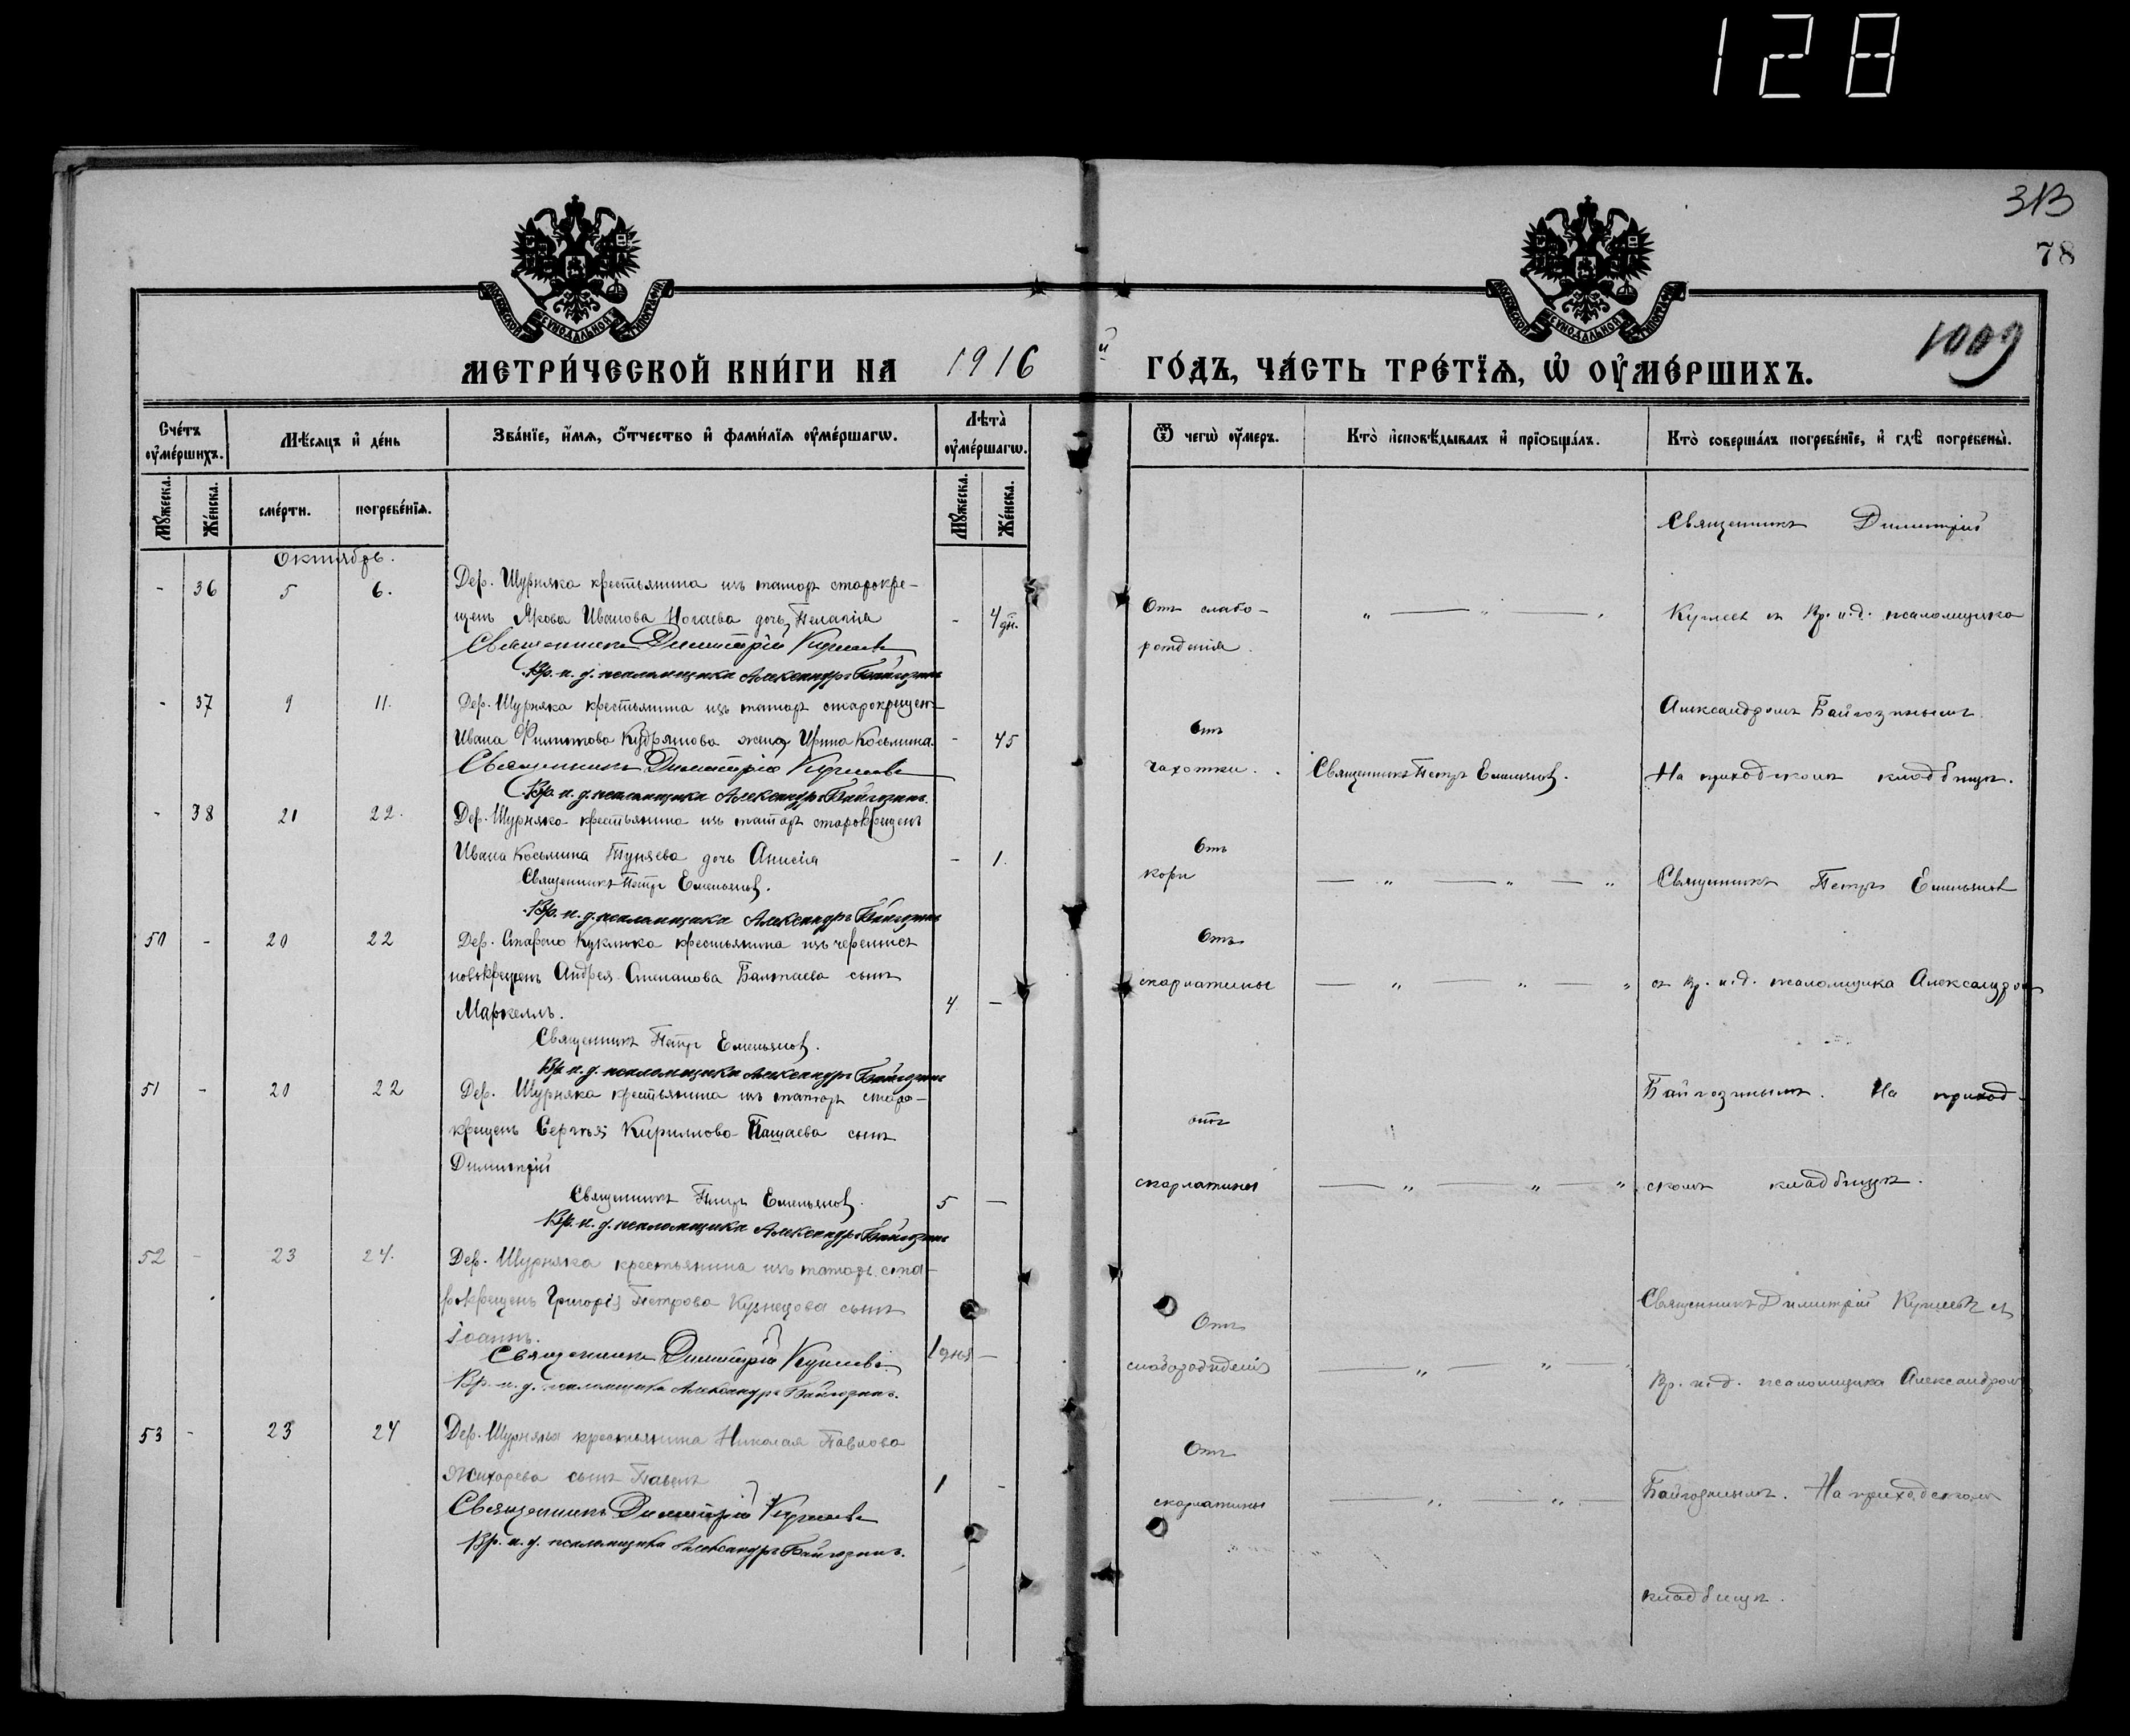 128
313
78
МОСКОВСКОЙ СѴНОДАЛЬНОЙ ТИПОГРАФІИ
МОСКОВСКОЙ СѴНОДАЛЬНОЙ ТИПОГРАФІИ
1009
МЕТРИ́ЧЕСКОЙ КНИ́ГИ НА 1916 й ГО́ДЪ, ЧА́СТЬ ТРЕ́ТЇѦ, Ѡ҆ ОУ҆МЕ́РШИХЪ.
Сче́тъ оу҆ме́ршихъ.
Мѣ́сяцъ и҆ де́нь
Зва́нїе, и҆́мѧ, ѻ҆́тчество и҆ фами́лїѧ оу҆ме́ршагѡ.
Лѣ́та оу҆ме́ршагѡ.
Ѿ чегѡ̀ оу҆́меръ.
Кто̀ и҆сповѣ́дывалъ и҆ прїѡбща́лъ.
Кто̀ соверша́лъ погребе́нїе, и҆ гдѣ̀ погребены̀.
Мꙋ́жеска.
Же́нска.
сме́рти.
погребе́нїѧ.
Мꙋ́жеска.
Же́нска.
Октябрь.
- 36 5 6. Дер. Шурняка крестьянина изъ татаръ старокре-
щенъ Якова Иванова Ногаева дочь Пелагія - 4 дн.
Священникъ Димитрій Купцевъ
Вр. и. д. псаломщика Александръ Байгозинъ
Отъ слабо-
рожденія.
Священникъ Димитрій
Купцевъ съ Вр. и. д. псаломщика
- 37 9 11. Дер. Шурняка крестьянина изъ татаръ старокрещенъ
Ивана Филиппова Кудряшова жена Ирина Косьмина. - 45
Священникъ Димитрій Купцевъ
Вр. и. д. псаломщика Александръ Байгозинъ.
Отъ
чахотки.
Священникъ Петръ Емельяновъ.
Александромъ Байгозинымъ.
На приходскомъ кладбищѣ.
- 38 21 22. Дер. Шурняка крестьянина изъ татаръ старокрещенъ
Ивана Косьмина Туняева дочь Анисія - 1.
Священникъ Петръ Емельяновъ.
Вр. и. д. псаломщика Александръ Байгозинъ
Отъ
кори
Священникъ Петръ Емельяновъ
50 - 20 22 Дер. Стараго Куклюка крестьянина изъ черемисъ
новокрещенъ Андрея Степанова Балтаева сынъ
Маркеллъ. 4 -
Священникъ Петръ Емельяновъ.
Вр. и. д. псаломщика Александръ Байгозинъ
Отъ
скарлатины
съ Вр. и. д. псаломщика Александромъ
51 - 20 22 Дер. Шурняка крестьянина изъ татаръ старо-
крещенъ Сергѣя Кириллова Пашаева сынъ
Димитрій
Священникъ Петръ Емельяновъ. 5 -
Вр. и. д. псаломщика Александръ Байгозинъ
отъ
скарлатины
Байгозинымъ. На приход-
скомъ кладбищѣ.
52 - 23 24. Дер. Шурняка крестьянина изъ татаръ ста-
рокрещенъ Григорія Петрова Кузнецова сынъ
Іоаннъ.
Священникъ Димитрій Купцевъ 1 дня -
Вр. и. д. псаломщика Александръ Байгозинъ.
Отъ
слаборожденія
Священникъ Димитрій Купцевъ съ
Вр. и. д. псаломщика Александромъ
53 - 23 24 Дер. Шурняка крестьянина Николая Павлова
Жихарева сынъ Павелъ 1 -
Священникъ Димитрій Купцевъ
Вр. и. д. псаломщика Александръ Байгозинъ.
Отъ
скарлатины
Байгозинымъ. На приходскомъ
кладбищѣ.